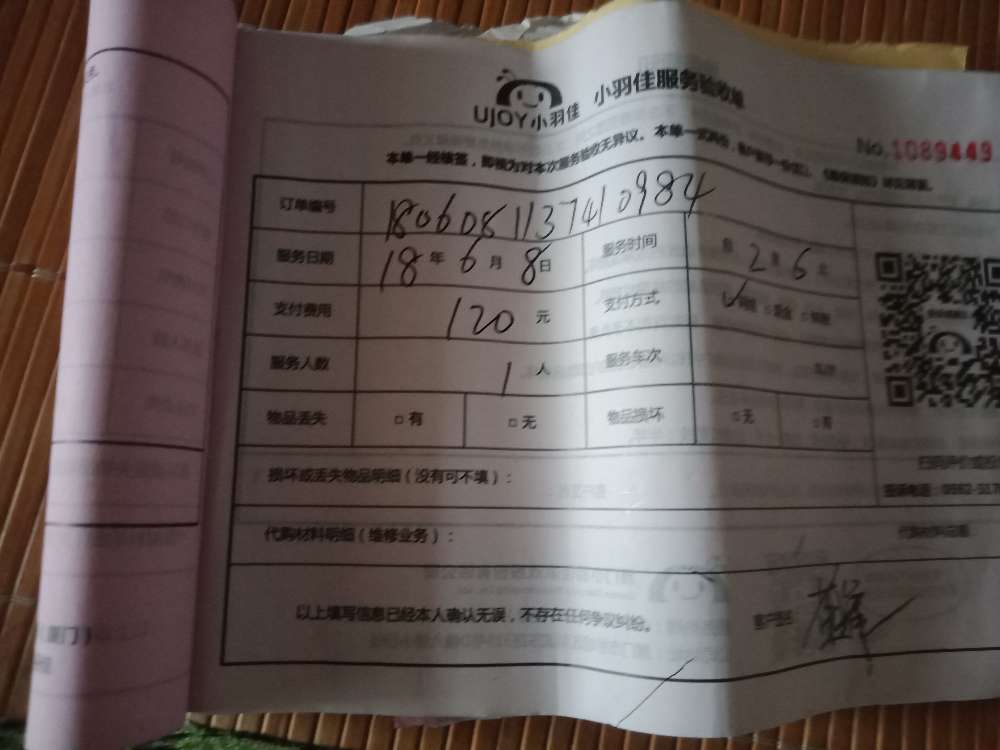 UJOY小羽佳 小羽佳服务验收单
No.1089449
本单一经签签，即视为对本次服务验收无异议。本单一式两份，
订单编号 1806081137410984
服务日期 18年6月8日 服务时间 2 5
支付费用 120元 支付方式 ✓ □现金 □
服务人数 1人 服务车次
物品丢失 □有 □无 物品损坏 □无 □有
损坏或丢失物品明细（没有可不填）：
代购材料明细（维修业务）： 代购材料
以上填写信息已经本人确认无误，不存在任何争议纠纷。 客户签名